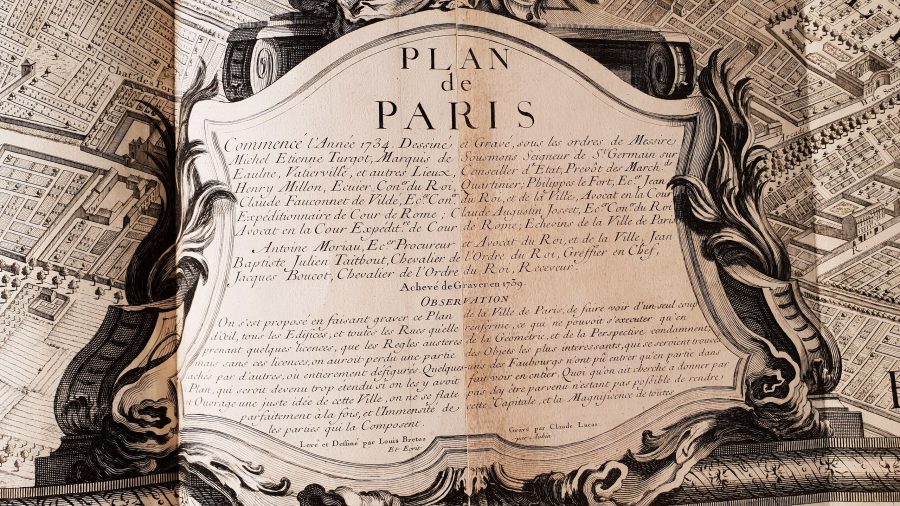 PLAN
de
PARIS
Commencé l'Année 1734. Dessiné et Gravé, sous les ordres de Messire
Michel Etienne Turgot, Marquis de Sousmons Seigneur de St. Germain sur
Eaulne, Vatierville, et autres Lieux, Conseiller d'Etat, Prevôt des March.ds
Henry Millon, Ecuier Con.er du Roi, Quartinier; Philippes le Fort, Ec.er Jean
Claude Fauconnet de Vildé, Ec.er Con.er du Roi, et de la Ville, Avocat en la Cour
Expéditionnaire de Cour de Rome; Claude Augustin Josset, Ec.er Con.er du Roi
Avocat en la Cour Expédit.re de Cour de Rome; Echevins de la Ville de Paris
Antoine Moriau, Ec.er Procureur et Avocat du Roi, et de la Ville, Jean
Baptiste Julien Taitbout, Chevalier de l'Ordre du Roi, Greffier en Chef,
Jacques Boucot, Chevalier de l'Ordre du Roi, Receveur.
Achevé de Graver en 1739.
OBSERVATION
On s'est proposé en faisant graver ce Plan de la Ville de Paris, de faire voir d'un seul coup
d'œil, tous les Edifices, et toutes les Rues qu'elle renferme, ce qui ne pouvoit s'executer qu'en
prenant quelques licences, que les Regles austeres de la Géometrie, et de la Perspective condamnent;
mais sans ces licences, on auroit perdu une partie des Objets les plus interessants, qui se seroient trouvés
cachés par d'autres, ou entierement défigurés. Quelques-uns des Fauxbourgs n'ont pû entrer qu'en partie dans
Plan, qui seroit devenu trop etendu si on les y avoit fait voir en entier. Quoi qu'on ait cherché a donner par
Ouvrage une juste idée de cette Ville, on ne se flate pas d'y être parvenu n'estant pas possible de rendre
parfaitement à la fois, et l'Immensité de cette Capitale, et la Magnificence de toutes
les parties qui la Composent.
Levé et Dessiné par Louis Bretez Gravé par Claude Lucas
Et Ecrit par Aubin